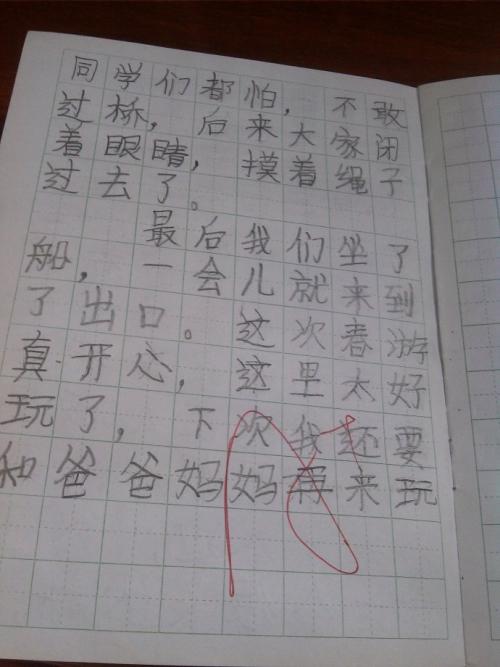 同学们都怕，不敢
过桥，后来大家闭
着眼睛，摸着绳子
过去了。
最后我们坐了
船，一会儿就来到
了出口。这次春游
真开心，这里太好
玩了，下次我还要
和爸爸妈妈再来玩